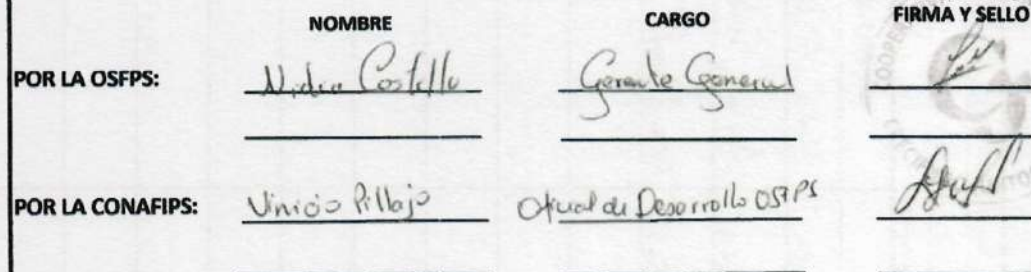 NOMBRE CARGO FIRMA Y SELLO
POR LA OSFPS: Nidia Costillo Gerente General
POR LA CONAFIPS: Vinicio Pillajo Oficial de Desarrollo OSFPS